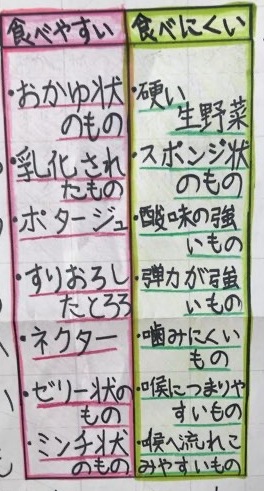 食べやすい
・おかゆ状
のもの
・乳化され
たもの
・ポタージュ
・すりおろし
たとろろ
・ネクター
・ゼリー状の
もの
・ミンチ状
のもの
食べにくい
・硬い
生野菜
・スポンジ状
のもの
・酸味の強
いもの
・弾力が強
いもの
・噛みにくい
もの
・喉につまりや
すいもの
・喉へ流れこ
みやすいもの